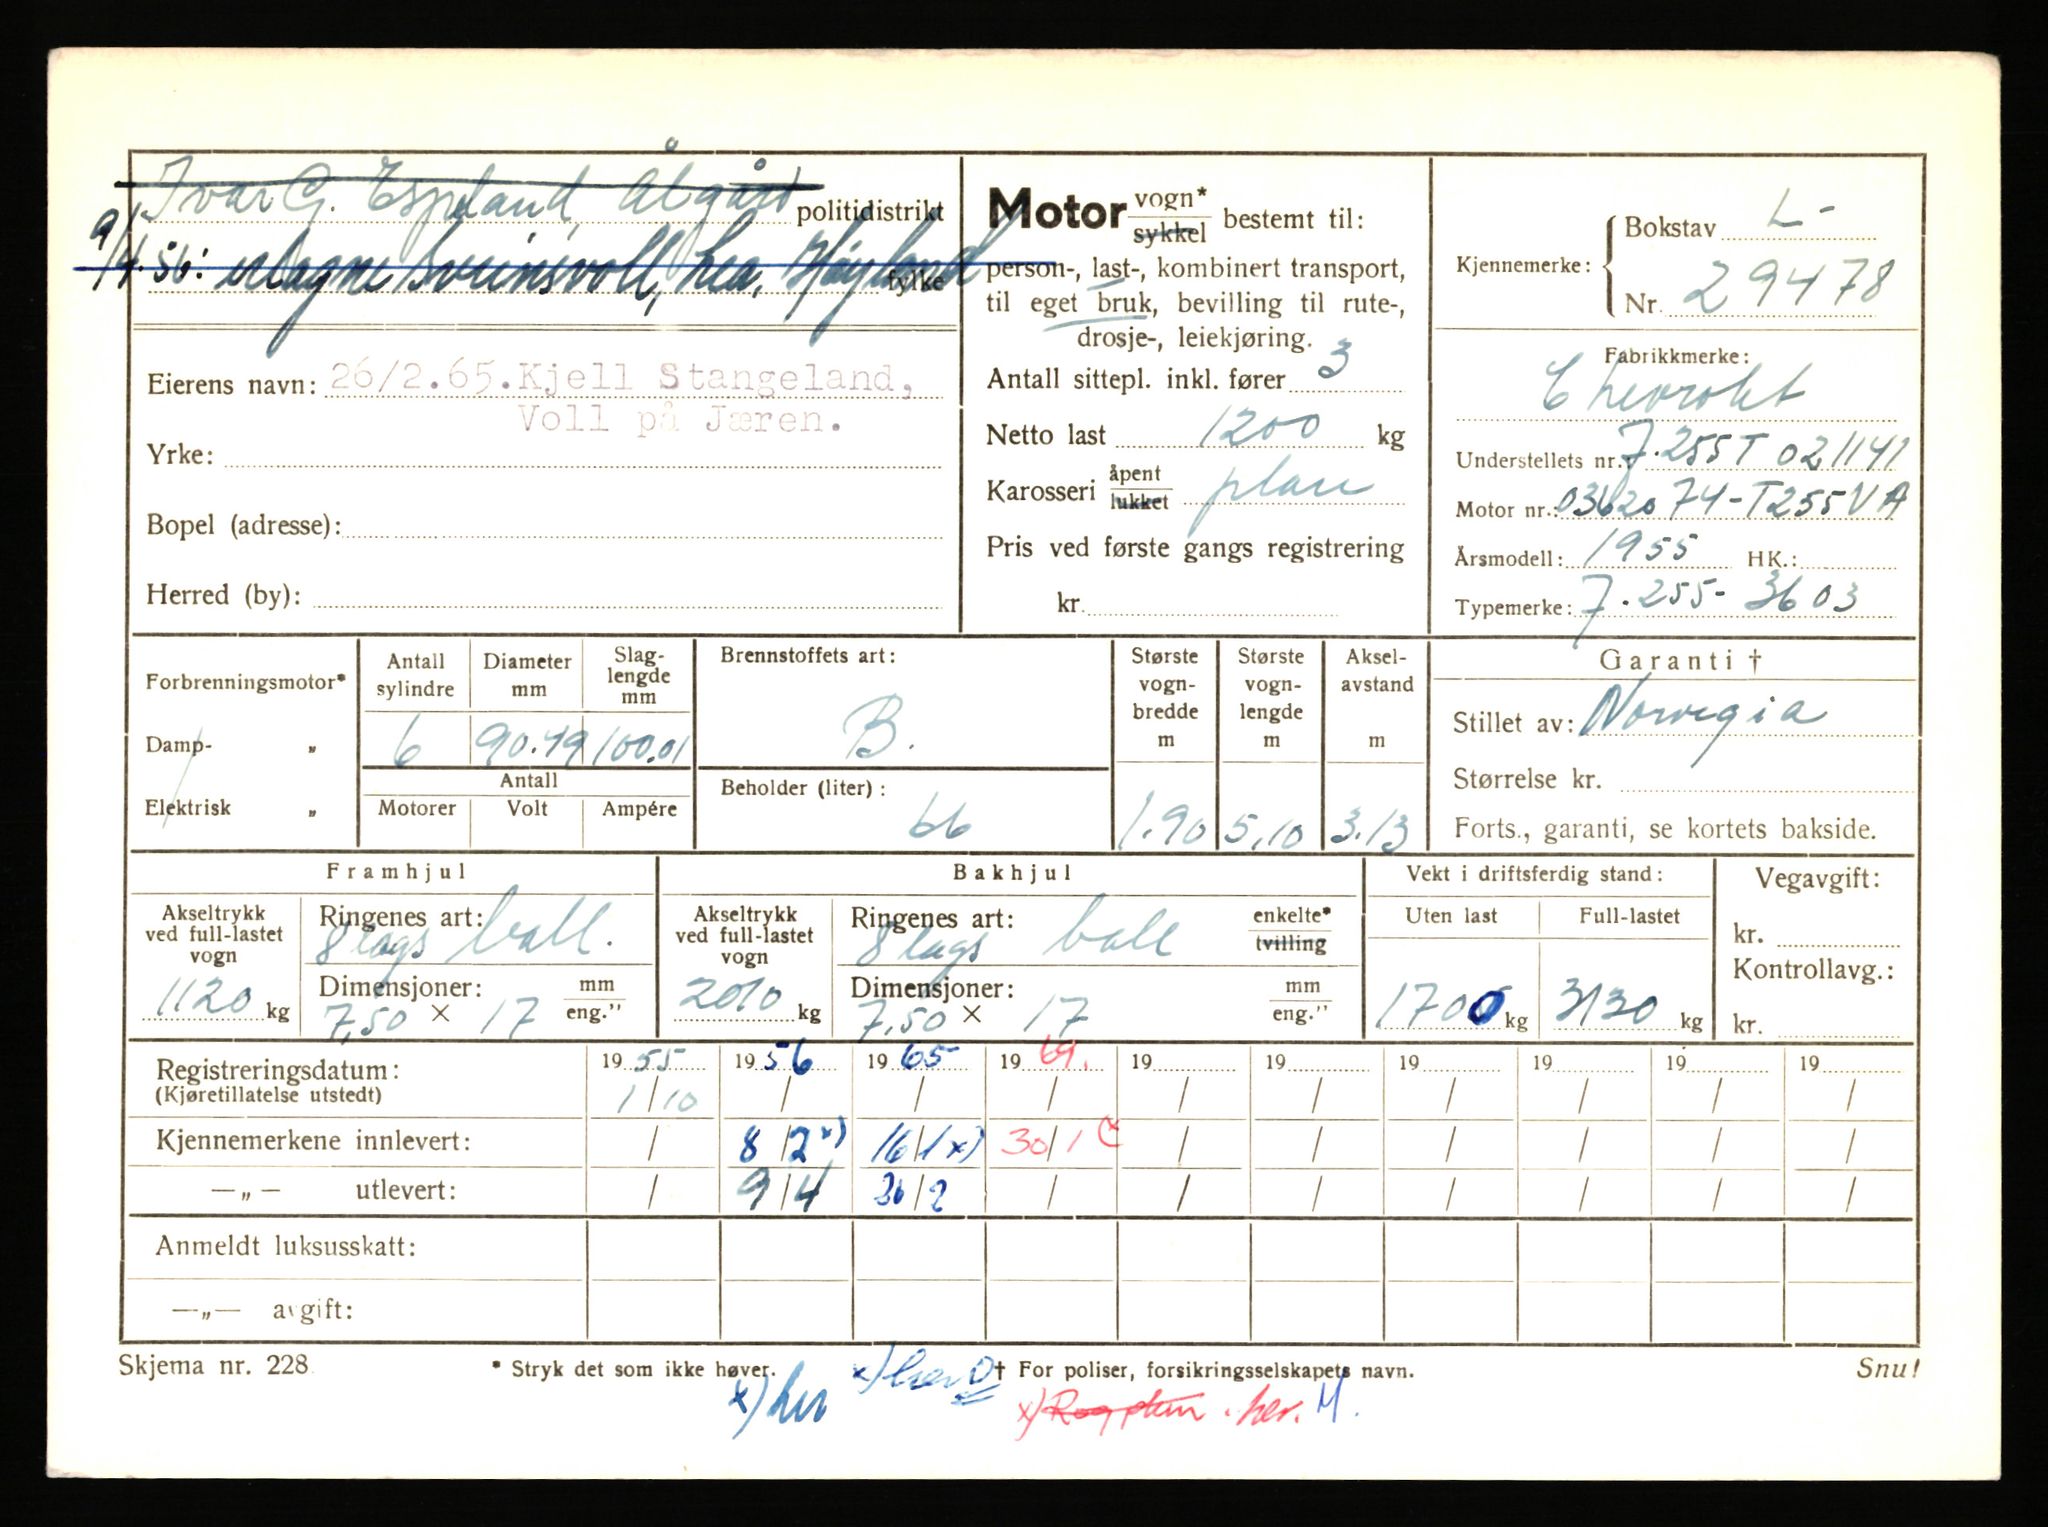 Ivar G. Espland, Ålgård politidistrikt
9/4.56: Magne Sveinsvoll, Lea, Høyland fylke
Eierens navn: 26/2.65. Kjell Stangeland,
Voll på Jæren.
Yrke:
Bopel (adresse):
Herred (by):
Motor vogn* sykkel bestemt til:
person-, last-, kombinert transport,
til eget bruk, bevilling til rute-,
drosje-, leiekjøring.
Antall sittepl. inkl. fører 3
Netto last 1200 kg
Karosseri åpent lukket plan
Pris ved første gangs registrering
kr.
Kjennemerke: Bokstav L-
Nr. 29478
Fabrikkmerke:
Chevrolet
Understellets nr.: 7.255T 021141
Motor nr.: 0362074-T255VA
Årsmodell: 1955 HK.:
Typemerke: 7.255-3603
Forbrenningsmotor*
Damp- „
Elektrisk „
Antall sylindre Diameter mm Slaglengde mm
6 90.49 100.01
Antall
Motorer Volt Ampére
Brennstoffets art:
B.
Beholder (liter):
66
Største vognbredde m Største vognlengde m Akselavstand m
1.90 5,10 3.13
Garanti †
Stillet av: Norvegia
Størrelse kr.
Forts., garanti, se kortets bakside.
Framhjul
Akseltrykk ved full-lastet vogn
1120 kg
Ringenes art: 8 lags ball.
Dimensjoner: mm eng."
7,50 × 17
Bakhjul
Akseltrykk ved full-lastet vogn
2010 kg
Ringenes art: 8 lags ball enkelte* tvilling
Dimensjoner: mm eng."
7,50 × 17
Vekt i driftsferdig stand:
Uten last Full-lastet
1700 kg 3130 kg
Vegavgift:
kr.
Kontrollavg.:
kr.
Registreringsdatum: 1955 1956 1965 1969. 19 19 19 19 19 19
(Kjøretillatelse utstedt) 1/10 / / / / / / / / /
Kjennemerkene innlevert: / 8/2 x) 16/1 x) 30/1 (x / / / / / /
—„— utlevert: / 9/4 26/2 / / / / / / /
Anmeldt luksusskatt:
—„— avgift:
Skjema nr. 228 * Stryk det som ikke høver. † For poliser, forsikringsselskapets navn. Snu!
x) her x) her
x) her. M.